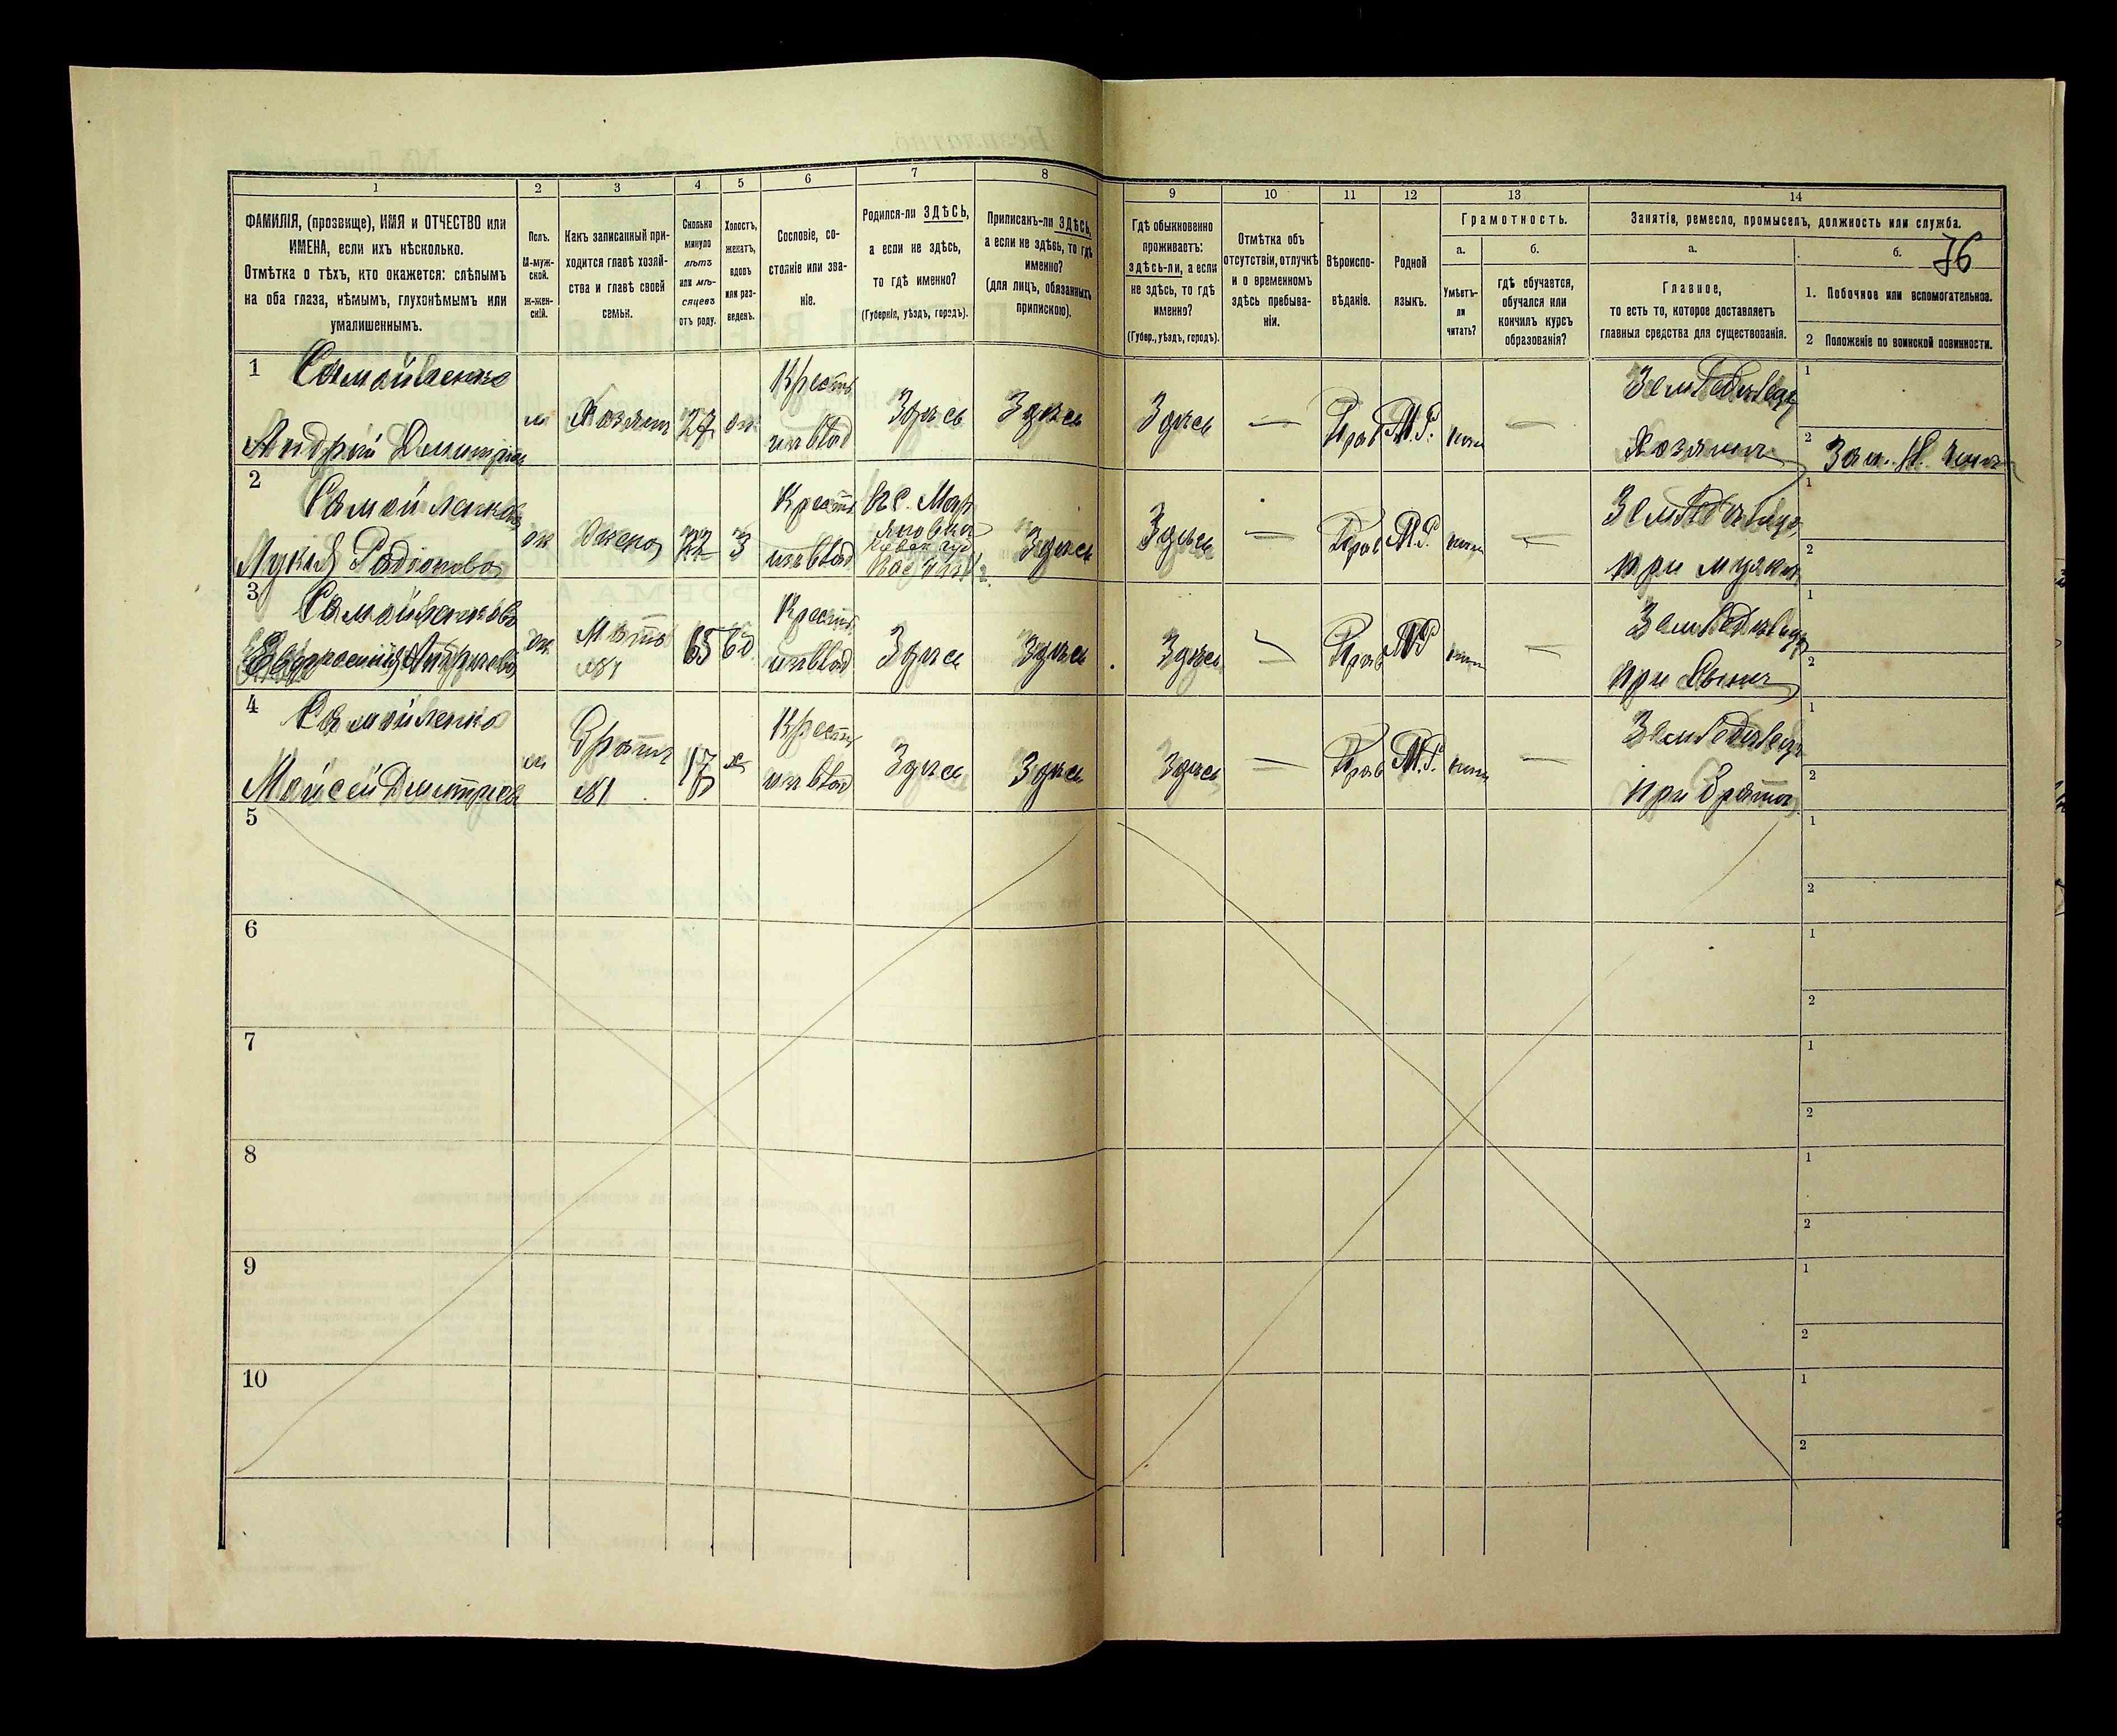 1
2
3
4
5
6
7
8
9
10
11
12
13
14
ФАМИЛІЯ, (прозвище), ИМЯ и ОТЧЕСТВО или
ИМЕНА, если ихъ нѣсколько.
Отмѣтка о тѣхъ, кто окажется: слѣпымъ
на оба глаза, нѣмымъ, глухонѣмымъ или
умалишеннымъ.
Полъ.
М-муж-
ской.
ж-жен-
скій.
Какъ записанный при-
ходится главѣ хозяй-
ства и главѣ своей
семьи.
Сколько
минуло
лѣтъ
или мѣ-
сяцевъ
отъ роду.
Холостъ,
женатъ,
вдовъ
или раз-
веденъ.
Сословіе, со-
стояніе или зва-
ніе.
Родился-ли ЗДѢСЬ,
а если не здѣсь,
то гдѣ именно?
(Губернія, уѣздъ, городъ).
Приписанъ-ли ЗДѢСЬ,
а если не здѣсь, то гдѣ
именно?
(для лицъ, обязанныхъ
припискою).
Гдѣ обыкновенно
проживаетъ:
здѣсь-ли, а если
не здѣсь, то гдѣ
именно?
(Губер., уѣздъ, городъ).
Отмѣтка объ
отсутствіи, отлучкѣ
и о временномъ
здѣсь пребыва-
ніи.
Вѣроиспо-
вѣданіе.
Родной
языкъ.
Грамотность.
а.
б.
Умѣетъ-
ли
читать?
гдѣ обучается,
обучался или
кончилъ курсъ
образованія?
Занятія, ремесло, промыселъ, должность или служба.
а.
б.
76
Главное,
то есть то, которое доставляетъ
главныя средства для существованія.
1. Побочное или вспомогательное.
2 Положеніе по воинской повинности.
1
Самойленко
Андрій Дмитріев
м
Хозяинъ
27
ж
Крестъ
изъ влад
Здѣсь
Здѣсь
Здѣсь
—
Прав
М.Р.
нѣт
—
Земледѣлецъ
Хозяинъ
1
2
Зап. Н. чинъ
2
Самойленкова
Лукія Радіонова
ж
Жена
22
З
Крестъ
изъ влад
Здѣсь
Здѣсь
—
Прав
М.Р.
нѣт
—
Земледѣлецъ
при мужѣ
1
2
3
Самойленкова
Евфросинія Андреева
ж
Мать
№1
65
вд
Крестъ
изъ влад
Здѣсь
Здѣсь
Здѣсь
—
Прав
МР
нѣт
—
Земледѣлецъ
при Сынѣ
1
2
4
Самойленко
Мойсей Дмитріевъ
м
Братъ
№1
17
х
Крестъ
изъ влад
Здѣсь
Здѣсь
Здѣсь
—
Прав
М.Р.
нѣт
—
Земледѣлецъ
при Братѣ
1
2
5
1
2
6
1
2
7
1
2
8
1
2
9
1
2
10
1
2